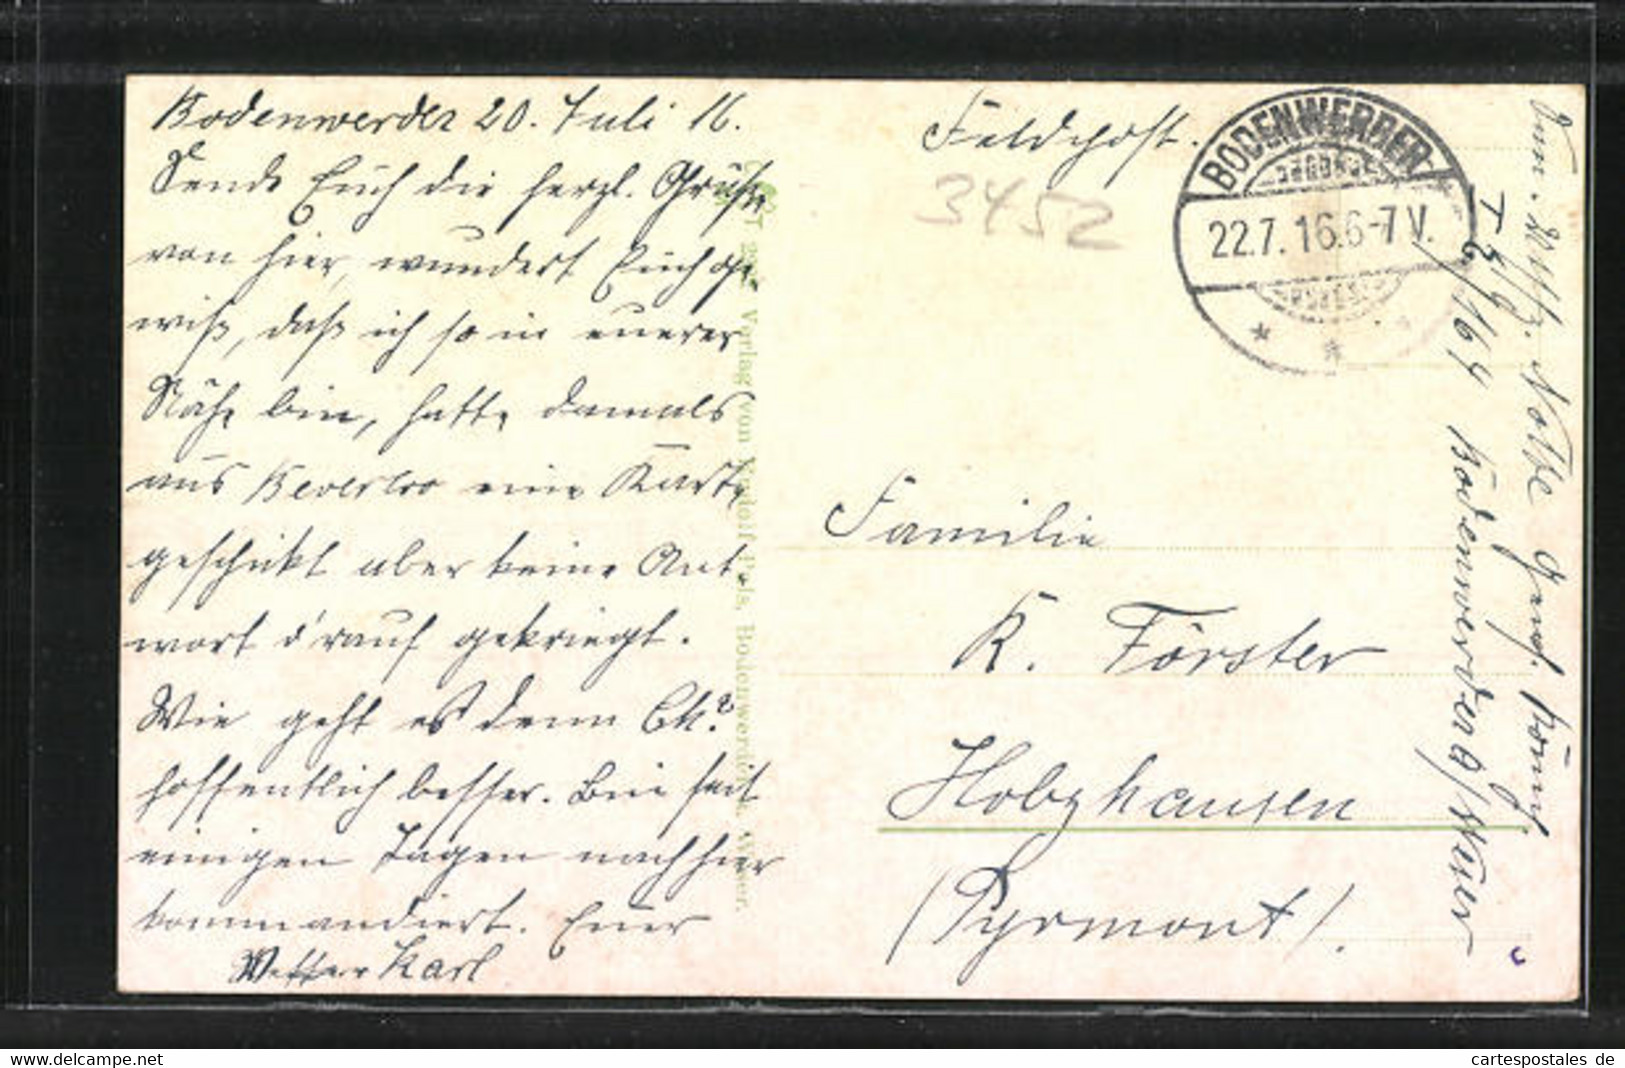 Bodenwerder 20. Juli 16.
Sende Euch die herzl. Grüße
von hier, wundert Euch ge-
wiß, daß ich so in eurer
Nähe bin, hatte damals
aus Beverloo eine Karte
geschickt aber keine Ant-
wort d'rauf gekriegt.
Wie geht es denn Ch?
hoffentlich besser. Bin seit
einigen Tagen nach hier
kommandiert. Euer
Vetter Karl
Verlag von Rudolf Pels, Bodenwerder a. Weser.
Feldpost.
3452
BODENWERDER
22.7.16.6-7V.
Familie
K. Förster
Holzhausen
(Pyrmont).
Nolte
Bodenwerder a/Weser
cartespostales de